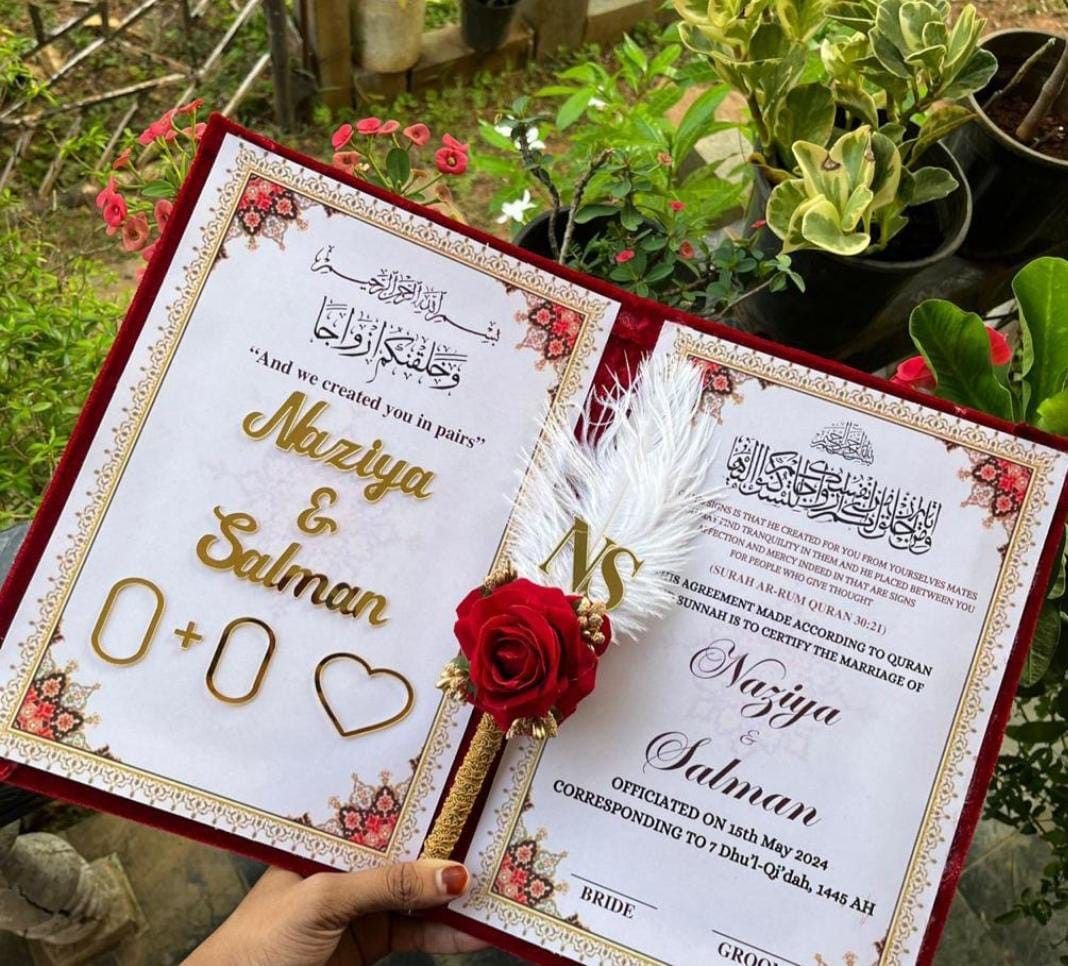 بسم الله الرحمن الرحيم
وخلقنكم ازواجا
“And we created you in pairs”
Naziya
&
Salman
+
NS
بسم الله الرحمن الرحيم
ومن اياته ان خلق لكم من انفسكم ازواجا لتسكنوا اليها
SIGNS IS THAT HE CREATED FOR YOU FROM YOURSELVES MATES
FIND TRANQUILITY IN THEM AND HE PLACED BETWEEN YOU
FECTION AND MERCY INDEED IN THAT ARE SIGNS
FOR PEOPLE WHO GIVE THOUGHT
(SURAH AR-RUM QURAN 30:21)
IS AGREEMENT MADE ACCORDING TO QURAN
SUNNAH IS TO CERTIFY THE MARRIAGE OF
Naziya
&
Salman
OFFICIATED ON 15th May 2024
CORRESPONDING TO 7 Dhu’l-Qi’dah, 1445 AH
BRIDE
GROO